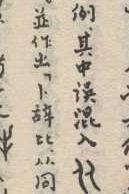 例其中误混入
。並作出「卜辞比从同